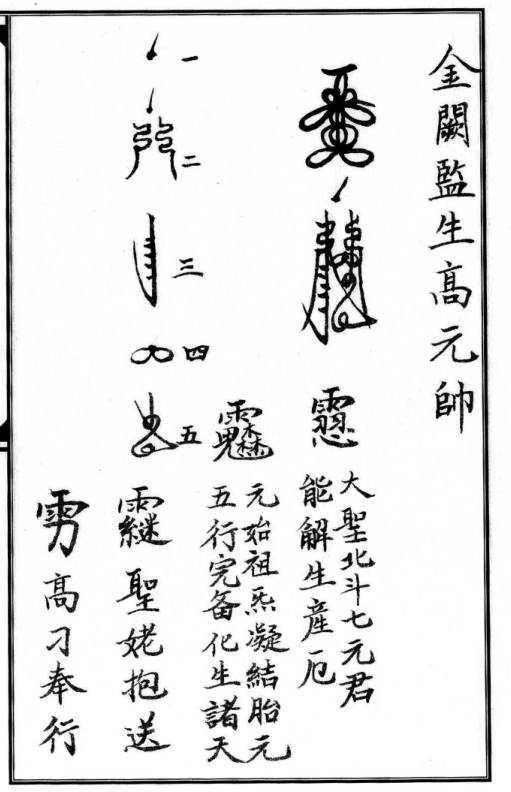 金闕監生高元帥
大聖北斗七元君
能解生產厄
元始祖炁凝結胎元
五行完备化生諸天
一
二
三
四
五
聖姥抱送
高刁奉行